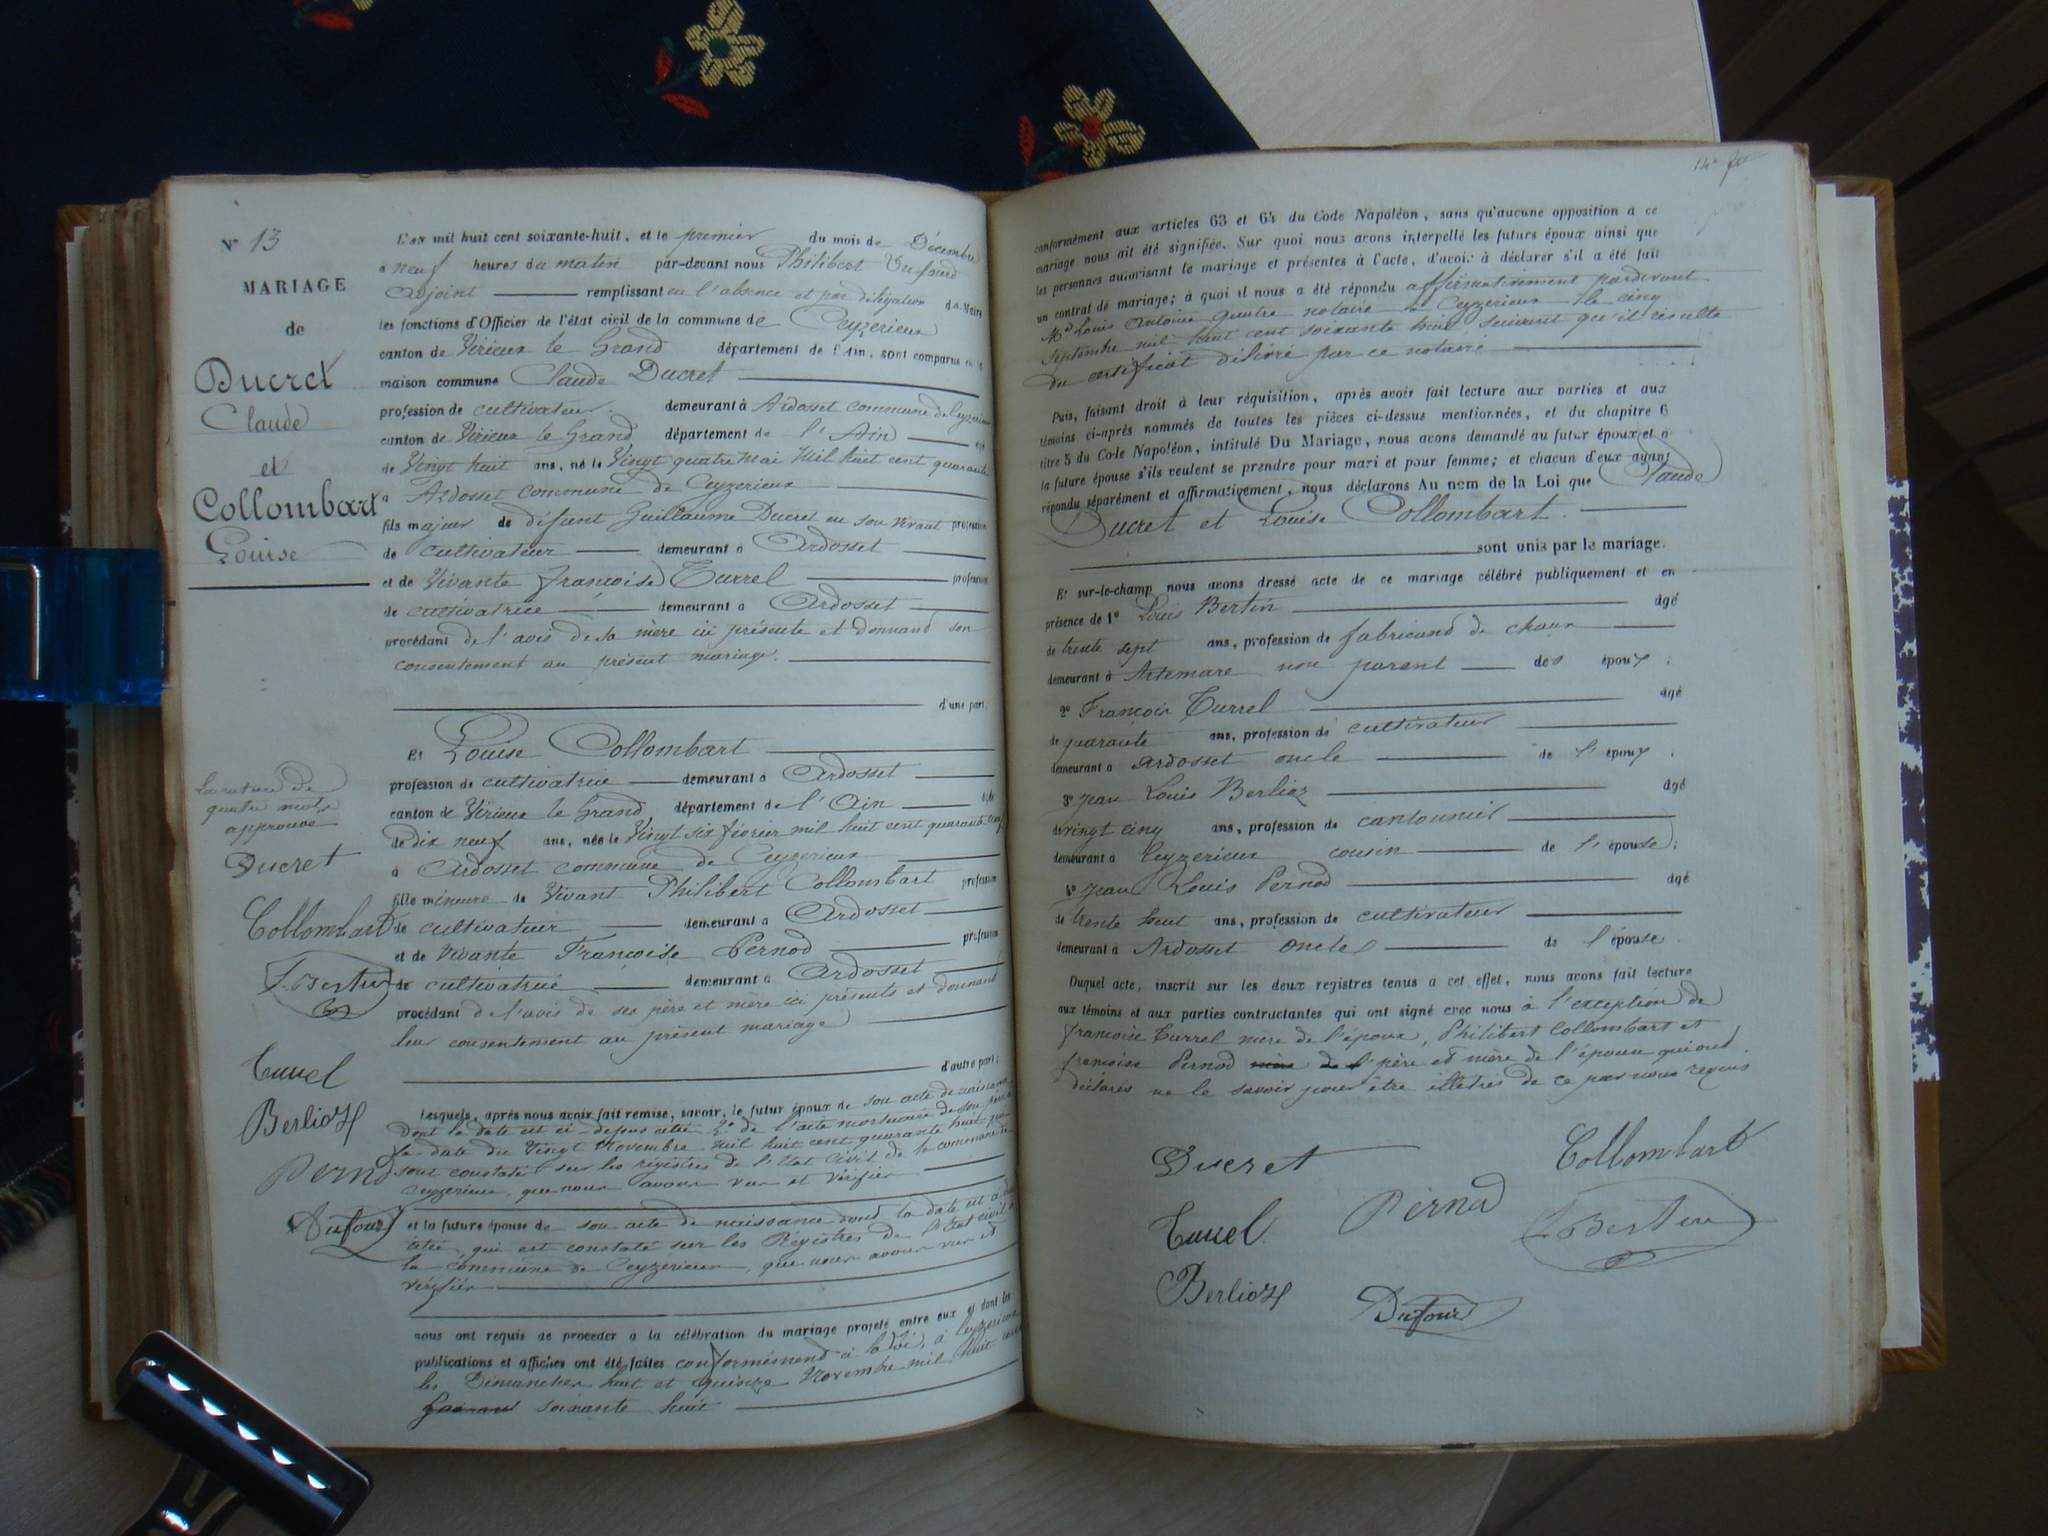 N° 13
MARIAGE
de
Ducret
Claude
et
Collombart
Louise
La rature de
quatre mots
approuvé
Ducret
Collombart
L. Bertin
Turrel
Berlioz
Pernod
Dufour
L'an mil huit cent soixante-huit, et le premier du mois de Décembre
a neuf heures du matin par-devant nous Philibert Dufour
Adjoint remplissant en l'absence et par délégation du Maire
les fonctions d'Officier de l'état civil de la commune de Ceyzerieux
canton de Virieux le Grand département de l'Ain, sont comparus en la
maison commune Claude Ducret
profession de cultivateur demeurant à Ardosset commune de Ceyzerieux
canton de Virieux le Grand département de l'Ain âgé
de Vingt huit ans, né le Vingt quatre Mai Mil huit cent quarante
à Ardosset commune de Ceyzerieux
fils majeur de défunt Guillaume Ducret en son vivant profession
de cultivateur demeurant à Ardosset
et de Vivante françoise Turrel profession
de cultivatrice demeurant à Ardosset
procédant de l'avis de sa mère ici présente et donnand son
consentement au présent mariage.
d'une part,
Et Louise Collombart
profession de cultivatrice demeurant à Ardosset
canton de Virieux le Grand département de l'Ain âgée
de Dix neuf ans, née le Vingt six février mil huit cent quarante
à Ardosset commune de Ceyzerieux
fille mineure de Vivant Philibert Collombart profession
de cultivateur demeurant à Ardosset
et de Vivante Françoise Pernod profession
de cultivatrice demeurant à Ardosset
procédant de l'avis de ses père et mère ici présents et donnant
leur consentement au présent mariage
d'autre part;
Lesquels, après nous avoir fait remise, savoir, le futur époux de son acte de naissance
dont la date est ci-dessus citée 2° de l'acte mortuaire de son père
la date du Vingt Novembre mil huit cent quarante huit qui
sont constatés sur les registres de l'Etat Civil de la commune de
Ceyzerieux, que nous avons vus et vérifiés
et la future épouse de son acte de naissance dont la date est ci-dessus
citée, qui est constaté sur les Registres de l'Etat civil de
la commune de Ceyzerieux, que nous avons vus et
vérifiés
nous ont requis de procéder à la célébration du mariage projeté entre eux et dont les
publications et affiches ont été faites conformément à la loi, à Ceyzerieux
les Dimanches huit et quinze Novembre mil huit cent
soixante huit
14e
conformément aux articles 63 et 64 du Code Napoléon, sans qu'aucune opposition a ce
mariage nous ait été signifiée. Sur quoi nous avons interpellé les futurs époux ainsi que
les personnes autorisant le mariage et présentes à l'acte, d'avoir à déclarer s'il a été fait
un contrat de mariage; à quoi il nous a été répondu affirmativement pardevant
Md Louis Antoine notaire à Ceyzerieux le cinq
Septembre mil huit cent soixante huit, suivant qu'il résulte
du certificat délivré par ce notaire
Puis, faisant droit à leur réquisition, après avoir fait lecture aux parties et aux
témoins ci-après nommés de toutes les pièces ci-dessus mentionnées, et du chapitre 6
titre 5 du Code Napoléon, intitulé Du Mariage, nous avons demandé au futur époux et à
la future épouse s'ils veulent se prendre pour mari et pour femme; et chacun d'eux ayant
répondu séparément et affirmativement, nous déclarons Au nom de la Loi que Claude
Ducret et Louise Collombart.
sont unis par le mariage.
Et sur-le-champ nous avons dressé acte de ce mariage célébré publiquement et en
présence de 1° Louis Bertin âgé
de trente sept ans, profession de fabricand de chaux
demeurant à Artemare non parent des époux;
2° François Turrel âgé
de quarante ans, profession de cultivateur
demeurant à Ardosset oncle de l'époux;
3° Jean Louis Berlioz âgé
de vingt cinq ans, profession de cantonnier
demeurant à Ceyzerieux cousin de l'épouse;
4° Jean Louis Pernod âgé
de trente huit ans, profession de cultivateur
demeurant à Ardosset oncle de l'épouse.
Duquel acte, inscrit sur les deux registres tenus a cet effet, nous avons fait lecture
aux témoins et aux parties contractantes qui ont signé avec nous à l'exception de
françoise Turrel mère de l'époux, Philibert Collombart et
françoise Pernod mère de l' père et mère de l'épouse qui ont
déclarés ne le savoir pour être illétrés de ce par nous requis
Ducret
Collombart
Turrel
Pernod
L. Bertin
Berlioz
Dufour